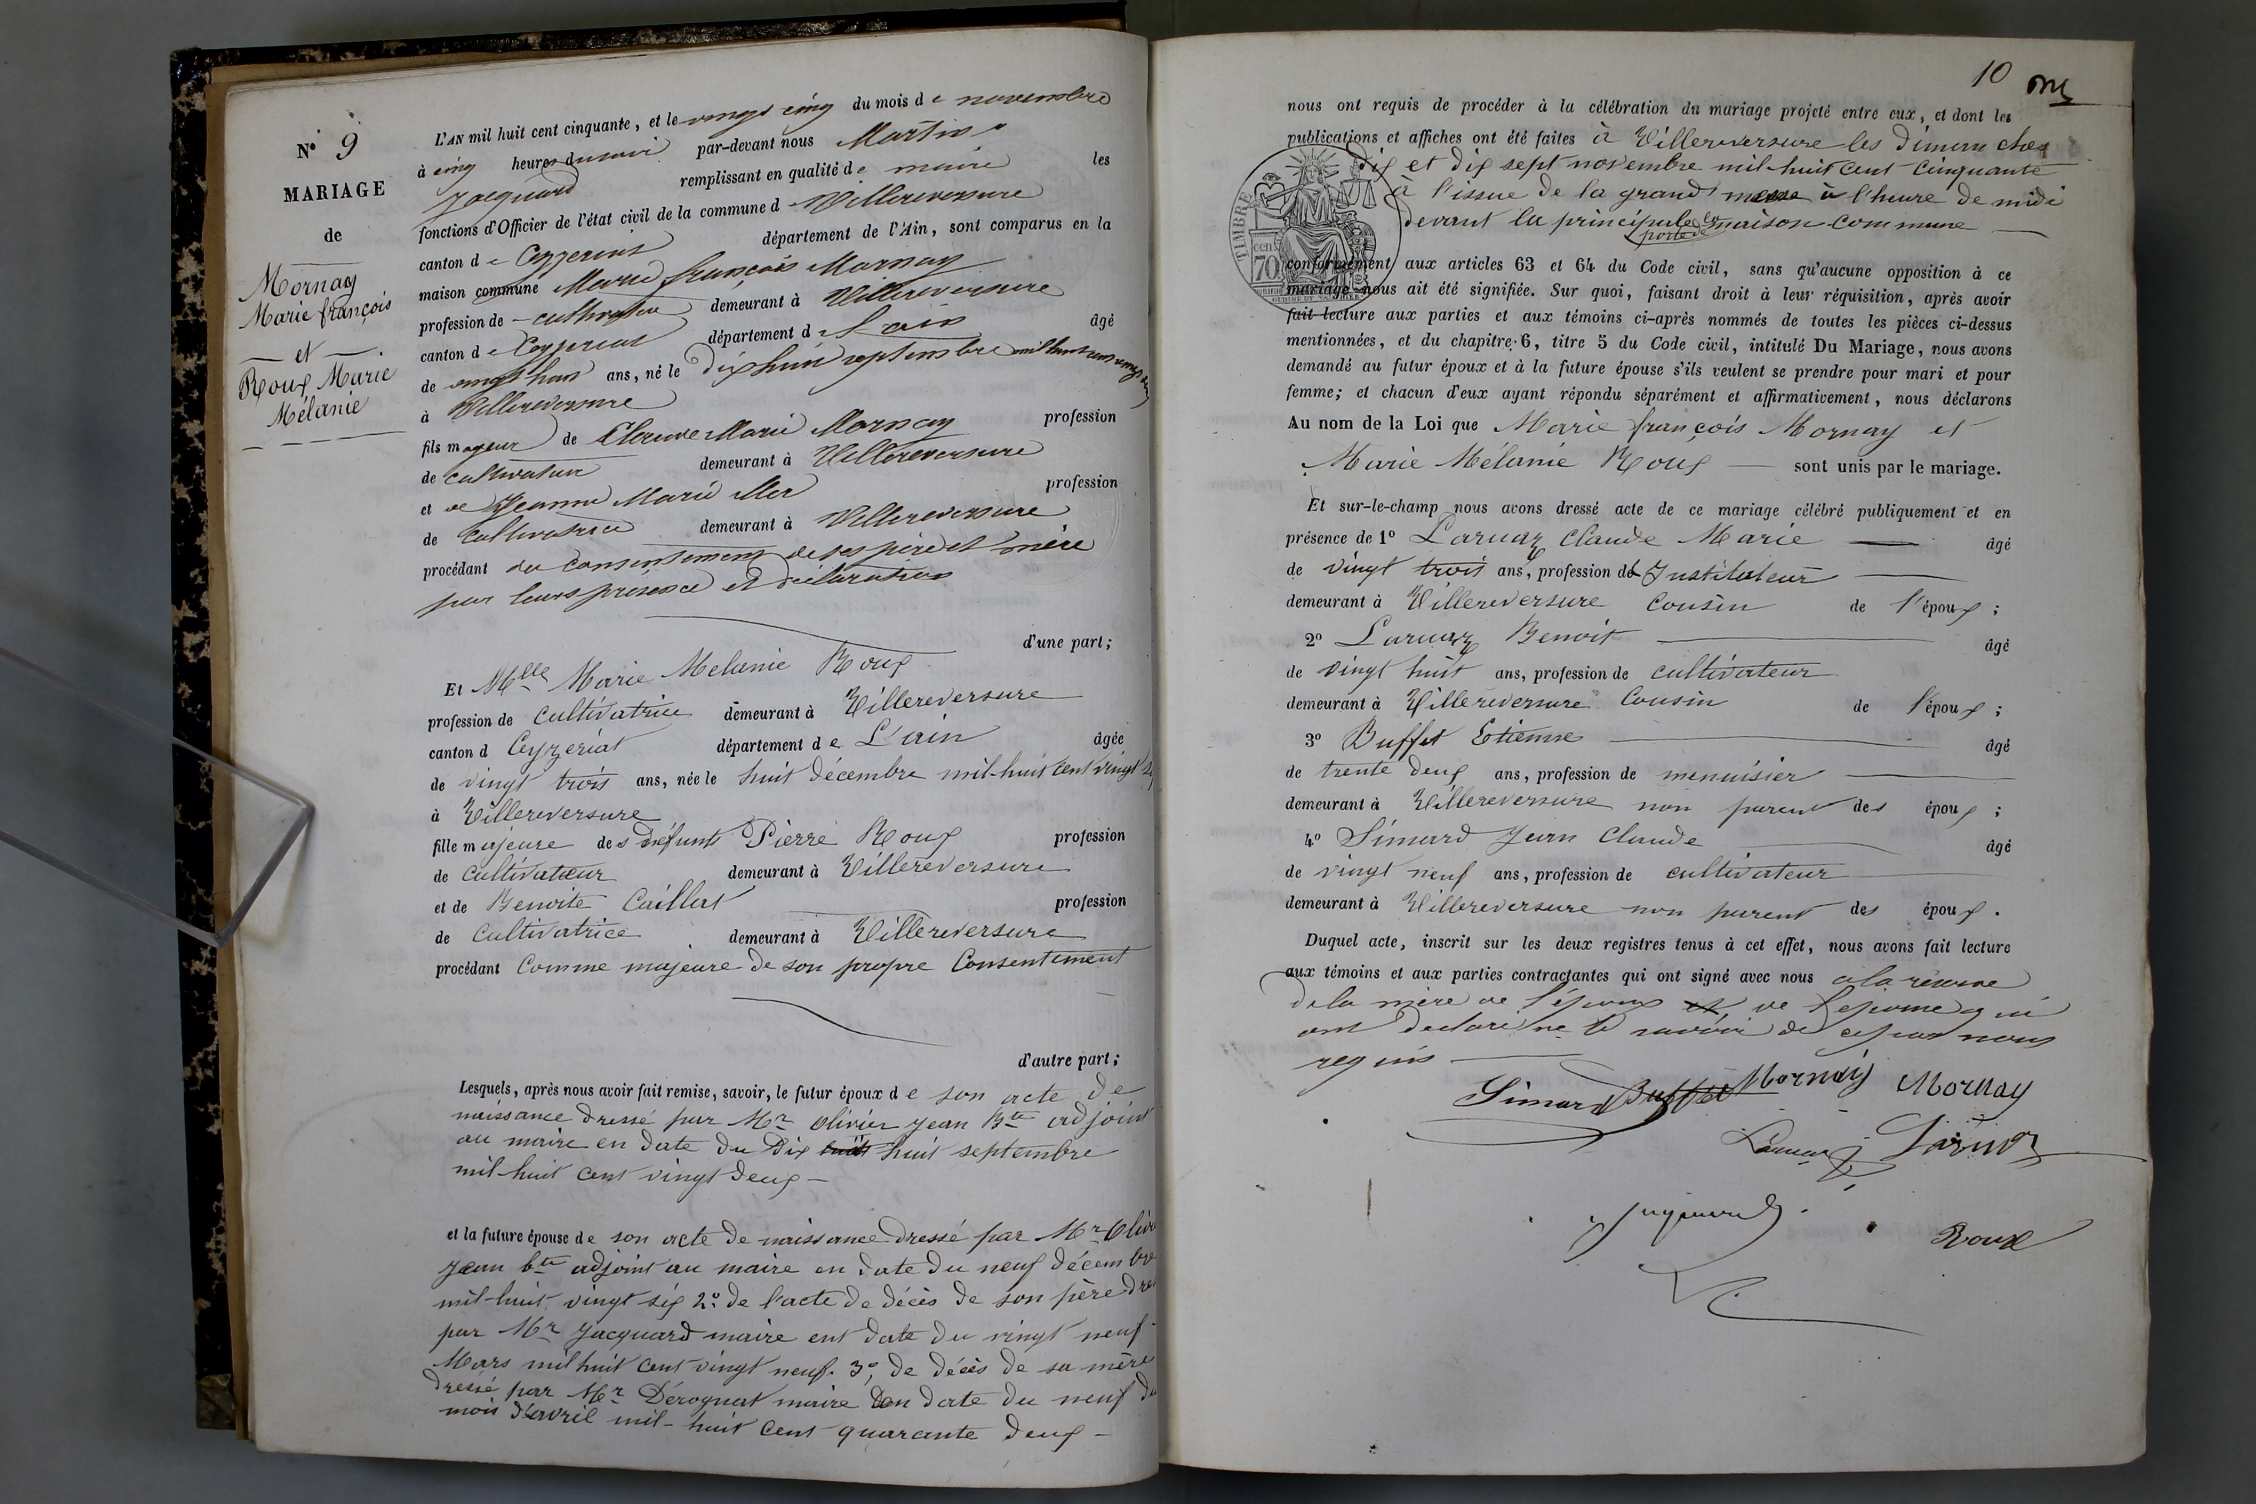 N° 9
MARIAGE
de
Mornay
Marie françois
et
Roux Marie
Mélanie
L'AN mil huit cent cinquante, et le vingt cinq du mois de novembre
à cinq heures du soir par-devant nous Martin
Jacquard remplissant en qualité de maire les
fonctions d'Officier de l'état civil de la commune d Villereversure
canton de Ceyzeriat département de l'Ain, sont comparus en la
maison commune Marie françois Mornay
profession de cultivateur demeurant à Villereversure
canton de Ceyzeriat département de L'ain âgé
de vingt huit ans, né le dix huit septembre mil huit cent vingt deux
à Villereversure
fils majeur de Claude Marie Mornay profession
de cultivateur demeurant à Villereversure
et de Jeanne Marie profession
de cultivatrice demeurant à Villereversure
procédant du consentement de ses père et mère
par leurs présence et déclaration
d'une part;
Et Mlle Marie Melanie Roux
profession de cultivatrice demeurant à Villereversure
canton d Ceyzeriat département de L'ain âgée
de vingt trois ans, née le huit décembre mil-huit cent vingt six
à Villereversure
fille majeure des défunts Pierre Roux profession
de cultivateur demeurant à Villereversure
et de Benoite Caillat profession
de cultivatrice demeurant à Villereversure
procédant Comme majeure de son propre Consentement
d'autre part;
Lesquels, après nous avoir fait remise, savoir, le futur époux de son acte de
naissance dressé par Mr Olivier Jean Bte adjoint
au maire en date du Dix huit septembre
mil-huit cent vingt deux
et la future épouse de son acte de naissance dressé par Mr Olivi
Jean bte adjoint au maire en date du neuf décembre
mil-huit vingt six 2° de l'acte de décès de son père dres
par Mr Jacquard maire ent date du vingt neuf
Mars mil huit cent vingt neuf. 3°, de décès de sa mère
dressé par Mr Dérognat maire en date du neuf du
mois d'avril mil-huit cent quarante deux
10
nous ont requis de procéder à la célébration du mariage projeté entre eux, et dont les
publications et affiches ont été faites à Villereversure les dimanches
dix et dix sept novembre mil-huit cent cinquante
à l'issue de la grand messe à l'heure de midi
devant la principale porte de la maison commune
TIMBRE
cen
70
conformément aux articles 63 et 64 du Code civil, sans qu'aucune opposition à ce
mariage nous ait été signifiée. Sur quoi, faisant droit à leur réquisition, après avoir
fait lecture aux parties et aux témoins ci-après nommés de toutes les pièces ci-dessus
mentionnées, et du chapitre 6, titre 5 du Code civil, intitulé Du Mariage, nous avons
demandé au futur époux et à la future épouse s'ils veulent se prendre pour mari et pour
femme; et chacun d'eux ayant répondu séparément et affirmativement, nous déclarons
Au nom de la Loi que Marie françois Mornay et
Marie Mélanie Roux sont unis par le mariage.
Et sur-le-champ nous avons dressé acte de ce mariage célébré publiquement et en
présence de 1° Larnaz Claude Marie âgé
de vingt trois ans, profession d Instituteur
demeurant à Villereversure cousin de l'époux;
2° Larnaz Benoit âgé
de vingt huit ans, profession de cultivateur
demeurant à Villereversure Cousin de l'époux;
3° Buffet Etienne âgé
de trente deux ans, profession de menuisier
demeurant à Villereversure non parent des époux;
4° Simard Jean Claude âgé
de vingt neuf ans, profession de cultivateur
demeurant à Villereversure non parent des époux.
Duquel acte, inscrit sur les deux registres tenus à cet effet, nous avons fait lecture
aux témoins et aux parties contractantes qui ont signé avec nous a la réserve
de la mère de l'époux et de l'epouse qui
ont declaré ne le savoir de ce par nous
requis
Simard Buffet Mornay Mornay
Larnaz Larnaz
Jacquard
Roux